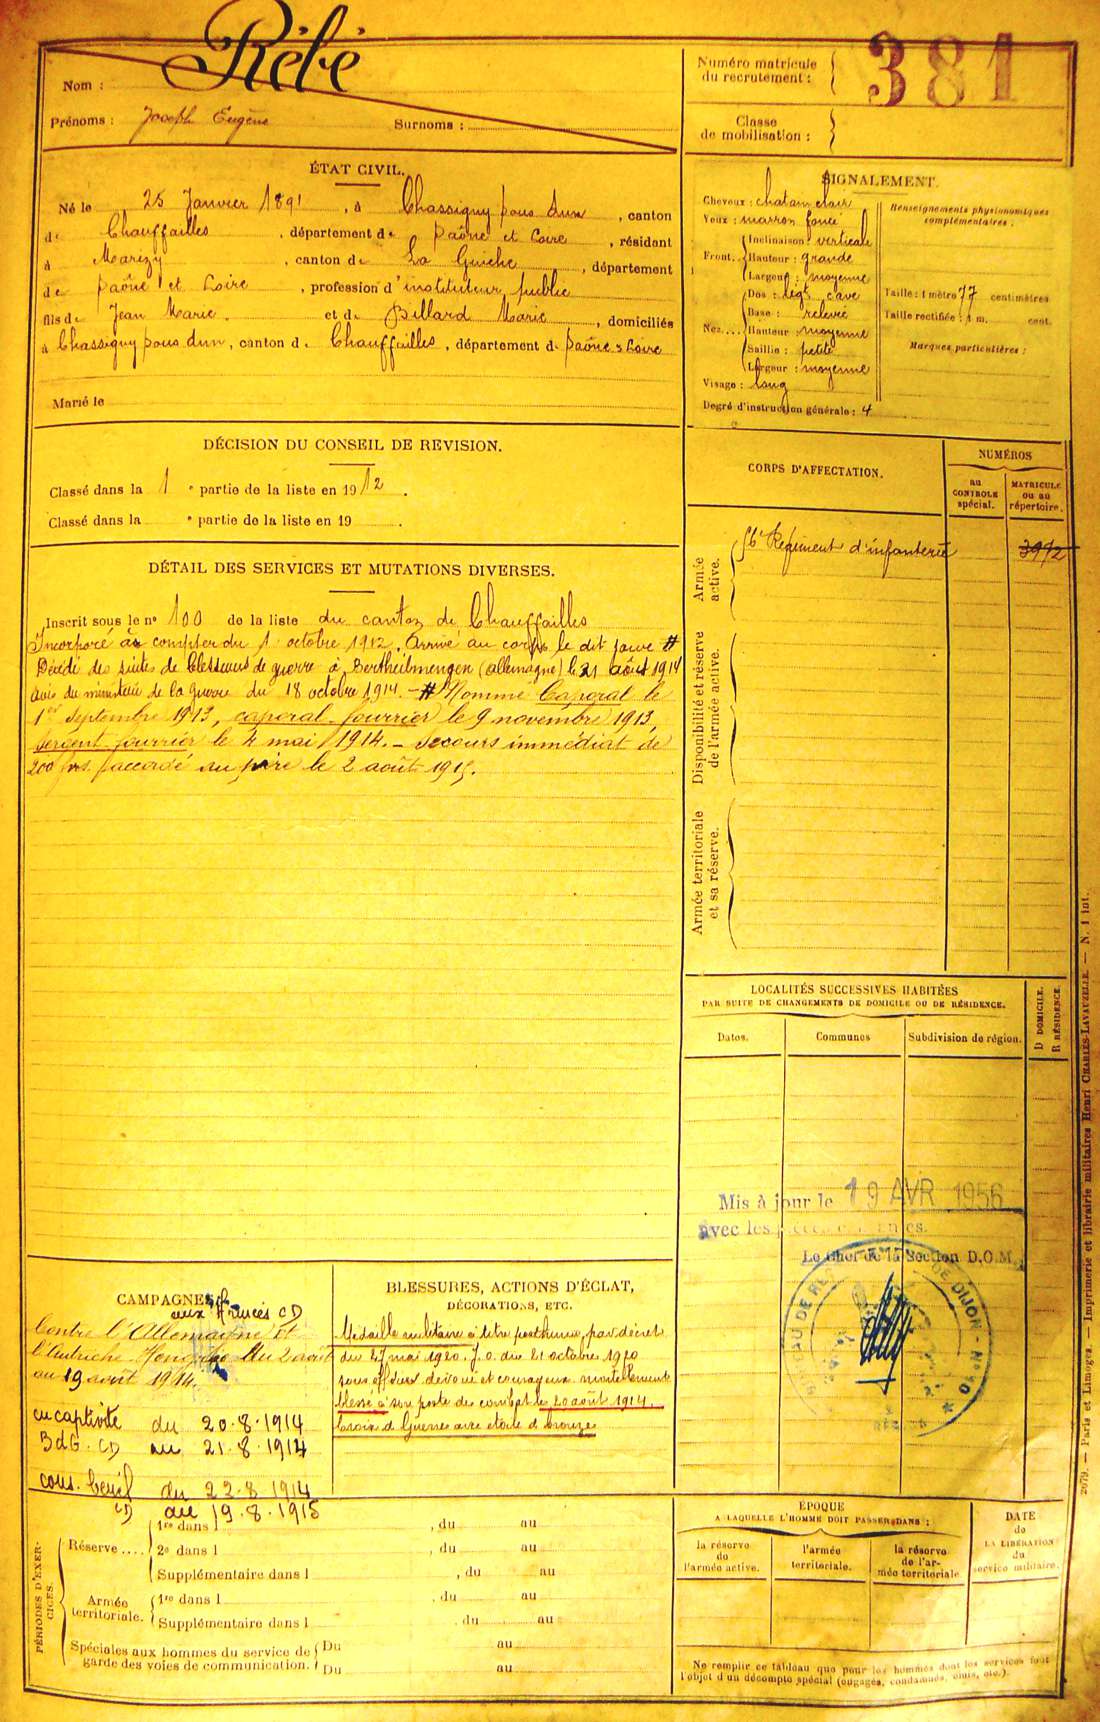 Nom : Rébé
Prénoms : Joseph Eugène Surnoms :
Numéro matricule
du recrutement : 381
Classe
de mobilisation :
ÉTAT CIVIL.
Né le 25 Janvier 1891, à Chassigny sous Dun, canton
de Chauffailles, département de Saône et Loire, résidant
à Marizy, canton de La Guiche, département
de Saône et Loire, profession d'instituteur public
fils de Jean Marie. et de Billard Marie, domiciliés
à Chassigny sous dun, canton de Chauffailles, département de Saône & Loire
Marié le
SIGNALEMENT.
Cheveux : chatain clair
Yeux : marron foncé
Front. Inclinaison : verticale
Hauteur : grande
Largeur : moyenne
Nez... Dos : légt cave
Base : relevée
Hauteur moyenne
Saillie : petite
Largeur : moyenne
Visage : long
Degré d'instruction générale : 4
Renseignements physionomiques
complémentaires :
Taille : 1 mètre 77 centimètres
Taille rectifiée : 1 m. cent.
Marques particulières :
DÉCISION DU CONSEIL DE REVISION.
Classé dans la 1 e partie de la liste en 1912.
Classé dans la e partie de la liste en 19 .
DÉTAIL DES SERVICES ET MUTATIONS DIVERSES.
Inscrit sous le no 100 de la liste du canton de Chauffailles
Incorporé à compter du 1 octobre 1912. Arrivé au corps le dit jour #
Décédé des suites de blessures de guerre à Bertheilmengen (allemagne) le 21 août 1914
avis du ministère de la guerre du 18 octobre 1914. - # Nommé Caporal le
1er septembre 1913, caporal fourrier le 9 novembre 1913,
sergent fourrier le 4 mai 1914. - Secours immédiat de
200 frs. accordé au père le 2 août 1915.
CORPS D'AFFECTATION.
NUMÉROS
au
CONTROLE
spécial.
MATRICULE
ou au
répertoire.
Armée
active.
56e Régiment d'infanterie 3972
Disponibilité et réserve
de l'armée active.
Armée territoriale
et sa réserve.
LOCALITÉS SUCCESSIVES HABITÉES
PAR SUITE DE CHANGEMENTS DE DOMICILE OU DE RÉSIDENCE.
D DOMICILE.
R RÉSIDENCE.
Dates. Communes Subdivision de région.
Mis à jour le 19 AVR 1956
avec les
Le Chef de la Section D.O.M.
BUREAU DE DE DIJON - N°
CAMPAGNES
aux Armées CD
Contre l'Allemagne et
l'Autriche-Hongrie du 2 août
au 19 août 1914.
en captivité du 20.8.1914
BdG. CD au 21.8.1914
du 22.8.1914
CD au 19.8.1915
BLESSURES, ACTIONS D'ÉCLAT,
DÉCORATIONS, ETC.
Médaille militaire à titre posthume, par décret
du 27 mai 1920. J.O. du 21 octobre 1920
sous officier dévoué et courageux mortellement
blessé à son poste de combat le 20 août 1914.
Croix de Guerre avec étoile de bronze
PÉRIODES D'EXERCICES.
Réserve .... 1re dans l , du au
2e dans l , du au
Supplémentaire dans l , du au
Armée
territoriale. 1re dans l , du au
Supplémentaire dans l , du au
Spéciales aux hommes du service de
garde des voies de communication. Du au
Du au
ÉPOQUE
A LAQUELLE L'HOMME DOIT PASSER DANS :
la réserve
de
l'armée active.
l'armée
territoriale.
la réserve
de l'ar-
mée territoriale
DATE
de
LA LIBÉRATION
du
service militaire.
Ne remplir ce tableau que pour les hommes dont les services font
l'objet d'un décompte spécial (engagés, condamnés, omis, etc.).
2679. — Paris et Limoges. — Imprimerie et librairie militaires Henri CHARLES-LAVAUZELLE. — N. 1 int.